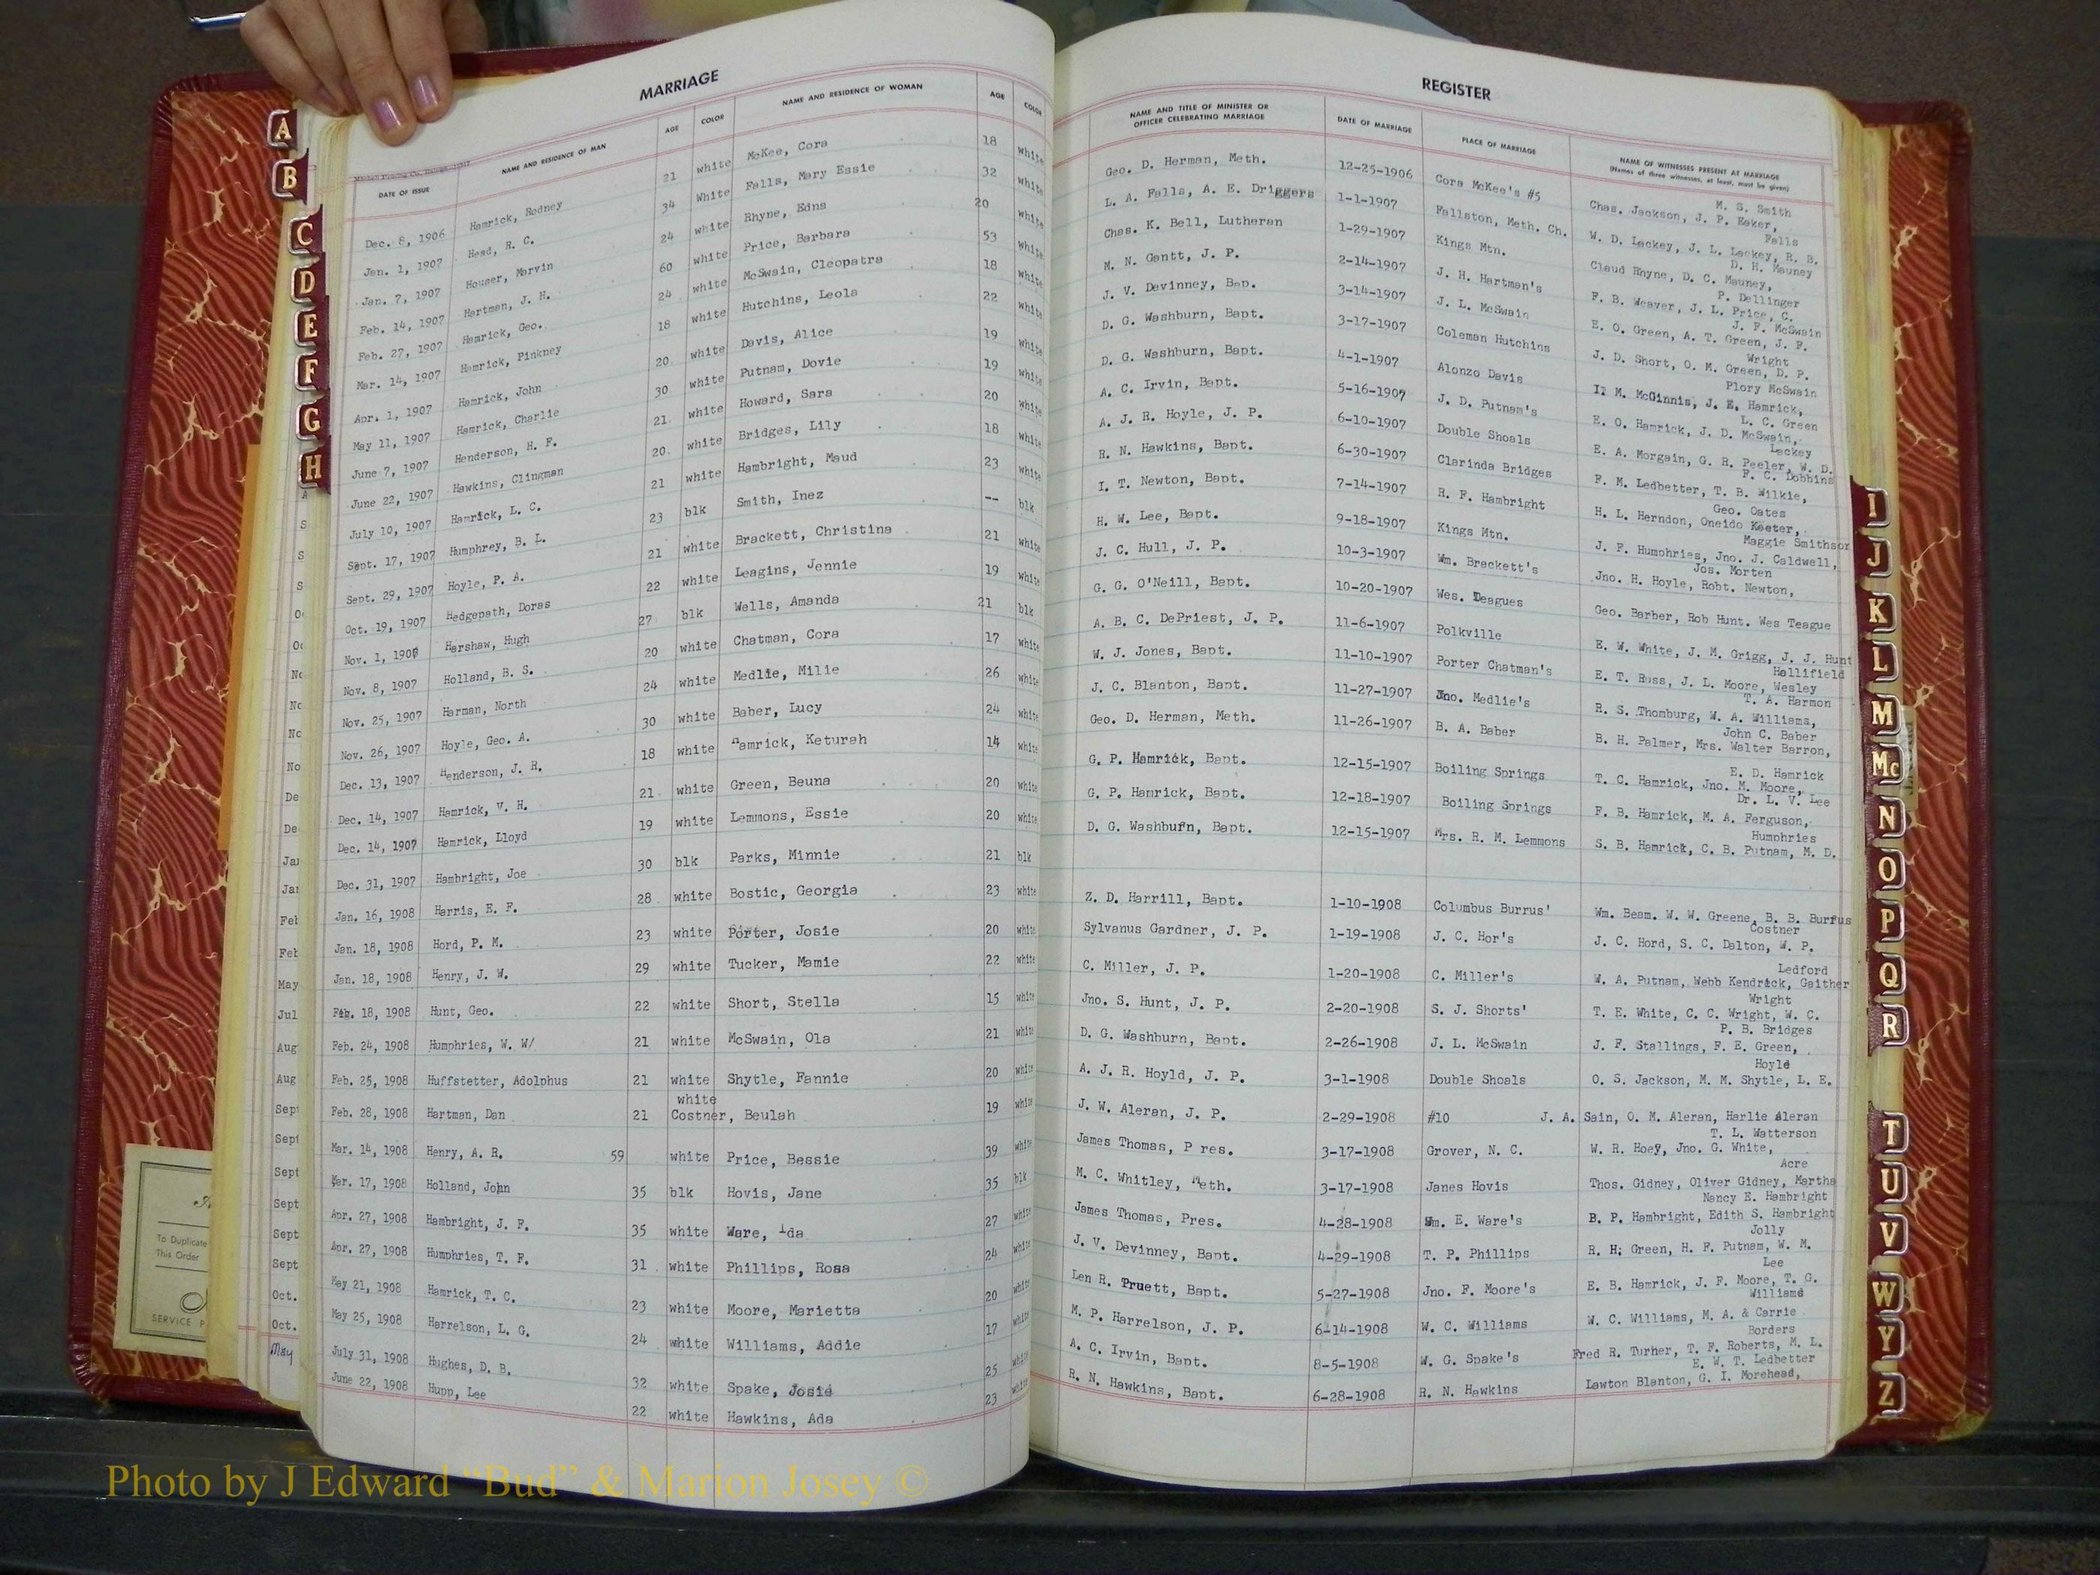 MARRIAGE
DATE OF ISSUE NAME AND RESIDENCE OF MAN AGE COLOR NAME AND RESIDENCE OF WOMAN AGE COLOR
Dec. 8, 1906 Hamrick, Rodney 21 white McKee, Cora 18 white
Jan. 1, 1907 Head, R. C. 34 White Falls, Mary Essie 32 white
Jan. 7, 1907 Houser, Marvin 24 white Rhyne, Edna 20 white
Feb. 14, 1907 Hartman, J. H. 60 white Price, Barbara 53 white
Feb. 27, 1907 Hamrick, Geo. 24 white McSwain, Cleopatra 18 white
Mar. 14, 1907 Hamrick, Pinkney 18 white Hutchins, Leola 22 white
Apr. 1, 1907 Hamrick, John 20 white Davis, Alice 19 white
May 11, 1907 Hamrick, Charlie 30 white Putnam, Dovie 19 white
June 7, 1907 Henderson, H. F. 21 white Howard, Sara 20 white
June 22, 1907 Hawkins, Clingman 20 white Bridges, Lily 18 white
July 10, 1907 Hamrick, L. C. 21 white Hambright, Maud 23 white
Sept. 17, 1907 Humphrey, B. L. 23 blk Smith, Inez -- blk
Sept. 29, 1907 Hoyle, P. A. 21 white Brackett, Christina 21 white
Oct. 19, 1907 Hedgepath, Doras 22 white Leagins, Jennie 19 white
Nov. 1, 1907 Harshaw, Hugh 27 blk Wells, Amanda 21 blk
Nov. 8, 1907 Holland, B. S. 20 white Chatman, Cora 17 white
Nov. 25, 1907 Harman, North 24 white Medlie, Milie 26 white
Nov. 26, 1907 Hoyle, Geo. A. 30 white Baber, Lucy 24 white
Dec. 13, 1907 Henderson, J. R. 18 white Hamrick, Keturah 14 white
Dec. 14, 1907 Hamrick, V. H. 21 white Green, Beuna 20 white
Dec. 14, 1907 Hamrick, Lloyd 19 white Lemmons, Essie 20 white
Dec. 31, 1907 Hambright, Joe 30 blk Parks, Minnie 21 blk
Jan. 16, 1908 Harris, E. F. 28 white Bostic, Georgia 23 white
Jan. 18, 1908 Hord, P. M. 23 white Porter, Josie 20 white
Jan. 18, 1908 Henry, J. W. 29 white Tucker, Mamie 22 white
Feb. 18, 1908 Hunt, Geo. 22 white Short, Stella 15 white
Feb. 24, 1908 Humphries, W. W/ 21 white McSwain, Ola 21 white
Feb. 25, 1908 Huffstetter, Adolphus 21 white Shytle, Fannie 20 white
Feb. 28, 1908 Hartman, Dan 21 white Costner, Beulah 19 white
Mar. 14, 1908 Henry, A. R. 59 white Price, Bessie 39 white
Mar. 17, 1908 Holland, John 35 blk Hovis, Jane 35 blk
Apr. 27, 1908 Hambright, J. F. 35 white Ware, Ida 27 white
Apr. 27, 1908 Humphries, T. F. 31 white Phillips, Rosa 24 white
May 21, 1908 Hamrick, T. C. 23 white Moore, Marietta 20 white
May 25, 1908 Harrelson, L. G. 24 white Williams, Addie 17 white
July 31, 1908 Hughes, D. B. 32 white Spake, Josie 25 white
June 22, 1908 Hupp, Lee 22 white Hawkins, Ada 23 white
REGISTER
NAME AND TITLE OF MINISTER OR OFFICER CELEBRATING MARRIAGE DATE OF MARRIAGE PLACE OF MARRIAGE NAME OF WITNESSES PRESENT AT MARRIAGE
(Names of three witnesses, at least, must be given)
M. S. Smith
Geo. D. Herman, Meth. 12-25-1906 Cora McKee's #5 Chas. Jackson, J. P. Eaker,
Falls
L. A. Falls, A. E. Driggers 1-1-1907 Fallston, Meth. Ch. W. D. Lackey, J. L. Lackey, R. B.
D. H. Mauney
Chas. K. Bell, Lutheran 1-29-1907 Kings Mtn. Claud Rhyne, D. C. Mauney,
P. Dellinger
M. N. Gantt, J. P. 2-14-1907 J. H. Hartman's F. B. Weaver, J. L. Price, C.
J. F. McSwain
J. V. Devinney, Bap. 3-14-1907 J. L. McSwain E. O. Green, A. T. Green, J. F.
Wright
D. G. Washburn, Bapt. 3-17-1907 Coleman Hutchins J. D. Short, O. M. Green, D. P.
Plory McSwain
D. G. Washburn, Bapt. 4-1-1907 Alonzo Davis I. M. McGinnis, J. E. Hamrick,
L. C. Green
A. C. Irvin, Bapt. 5-16-1907 J. D. Putnam's E. O. Hamrick, J. D. McSwain,
Lackey
A. J. R. Hoyle, J. P. 6-10-1907 Double Shoals E. A. Morgain, G. R. Peeler, W. D.
F. C. Dobbins
R. N. Hawkins, Bapt. 6-30-1907 Clarinda Bridges F. M. Ledbetter, T. B. Wilkie,
Geo. Oates
I. T. Newton, Bapt. 7-14-1907 R. F. Hambright H. L. Herndon, Oneido Keeter,
Maggie Smithson
H. W. Lee, Bapt. 9-18-1907 Kings Mtn. J. F. Humphries, Jno. J. Caldwell,
Jos. Morten
J. C. Hull, J. P. 10-3-1907 Wm. Brackett's Jno. H. Hoyle, Robt. Newton,
G. G. O'Neill, Bapt. 10-20-1907 Wes. Teagues Geo. Barber, Rob Hunt. Wes Teague
A. B. C. DePriest, J. P. 11-6-1907 Polkville E. W. White, J. M. Grigg, J. J. Hunt
Hollifield
W. J. Jones, Bapt. 11-10-1907 Porter Chatman's E. T. Russ, J. L. Moore, Wesley
T. A. Harmon
J. C. Blanton, Bapt. 11-27-1907 Jno. Medlie's R. S. Thomburg, W. A. Williams,
John C. Baber
Geo. D. Herman, Meth. 11-26-1907 B. A. Baber B. H. Palmer, Mrs. Walter Barron,
E. D. Hamrick
G. P. Hamrick, Bapt. 12-15-1907 Boiling Springs T. C. Hamrick, Jno. M. Moore,
Dr. L. V. Lee
G. P. Hamrick, Bapt. 12-18-1907 Boiling Springs F. B. Hamrick, M. A. Ferguson,
Humphries
D. G. Washburn, Bapt. 12-15-1907 Mrs. R. M. Lemmons S. B. Hamrick, C. B. Putnam, M. D.
Z. D. Harrill, Bapt. 1-10-1908 Columbus Burrus' Wm. Beam. W. W. Greene, B. B. Burrus
Costner
Sylvanus Gardner, J. P. 1-19-1908 J. C. Hor's J. C. Hord, S. C. Dalton, W. P.
Ledford
C. Miller, J. P. 1-20-1908 C. Miller's W. A. Putnam, Webb Kendrick, Gaither
Wright
Jno. S. Hunt, J. P. 2-20-1908 S. J. Shorts' T. E. White, C. C. Wright, W. C.
P. B. Bridges
D. G. Washburn, Bapt. 2-26-1908 J. L. McSwain J. F. Stallings, F. E. Green,
Hoyle
A. J. R. Hoyld, J. P. 3-1-1908 Double Shoals O. S. Jackson, M. M. Shytle, L. E.
J. W. Aleran, J. P. 2-29-1908 #10 J. A. Sain, O. M. Aleran, Harlie Aleran
T. L. Watterson
James Thomas, P res. 3-17-1908 Grover, N. C. W. R. Hoey, Jno. G. White,
Acre
M. C. Whitley, Meth. 3-17-1908 Janes Hovis Thos. Gidney, Oliver Gidney, Martha
Nancy E. Hambright
James Thomas, Pres. 4-28-1908 Wm. E. Ware's B. P. Hambright, Edith S. Hambright
Jolly
J. V. Devinney, Bapt. 4-29-1908 T. P. Phillips R. H; Green, H. F. Putnam, W. M.
Lee
Len R. Truett, Bapt. 5-27-1908 Jno. F. Moore's E. B. Hamrick, J. F. Moore, T. G.
Williams
M. P. Harrelson, J. P. 6-14-1908 W. C. Williams W. C. Williams, M. A. & Carrie
Borders
A. C. Irvin, Bapt. 8-5-1908 W. G. Spake's Fred R. Turher, T. F. Roberts, M. L.
E. W. T. Ledbetter
R. N. Hawkins, Bapt. 6-28-1908 R. N. Hawkins Lawton Blanton, G. I. Morehead,
A
B
C
D
E
F
G
H
I
J
K
L
M
Mc
N
O
P
Q
R
T
U
V
W
Y
Z
May
Jul
Aug
Aug
Sept
Sept
Sept
Sept
Sept
Sept
Oct.
Oct.
May
To Duplicate
This Order
SERVICE
Photo by J Edward “Bud” & Marion Josey ©